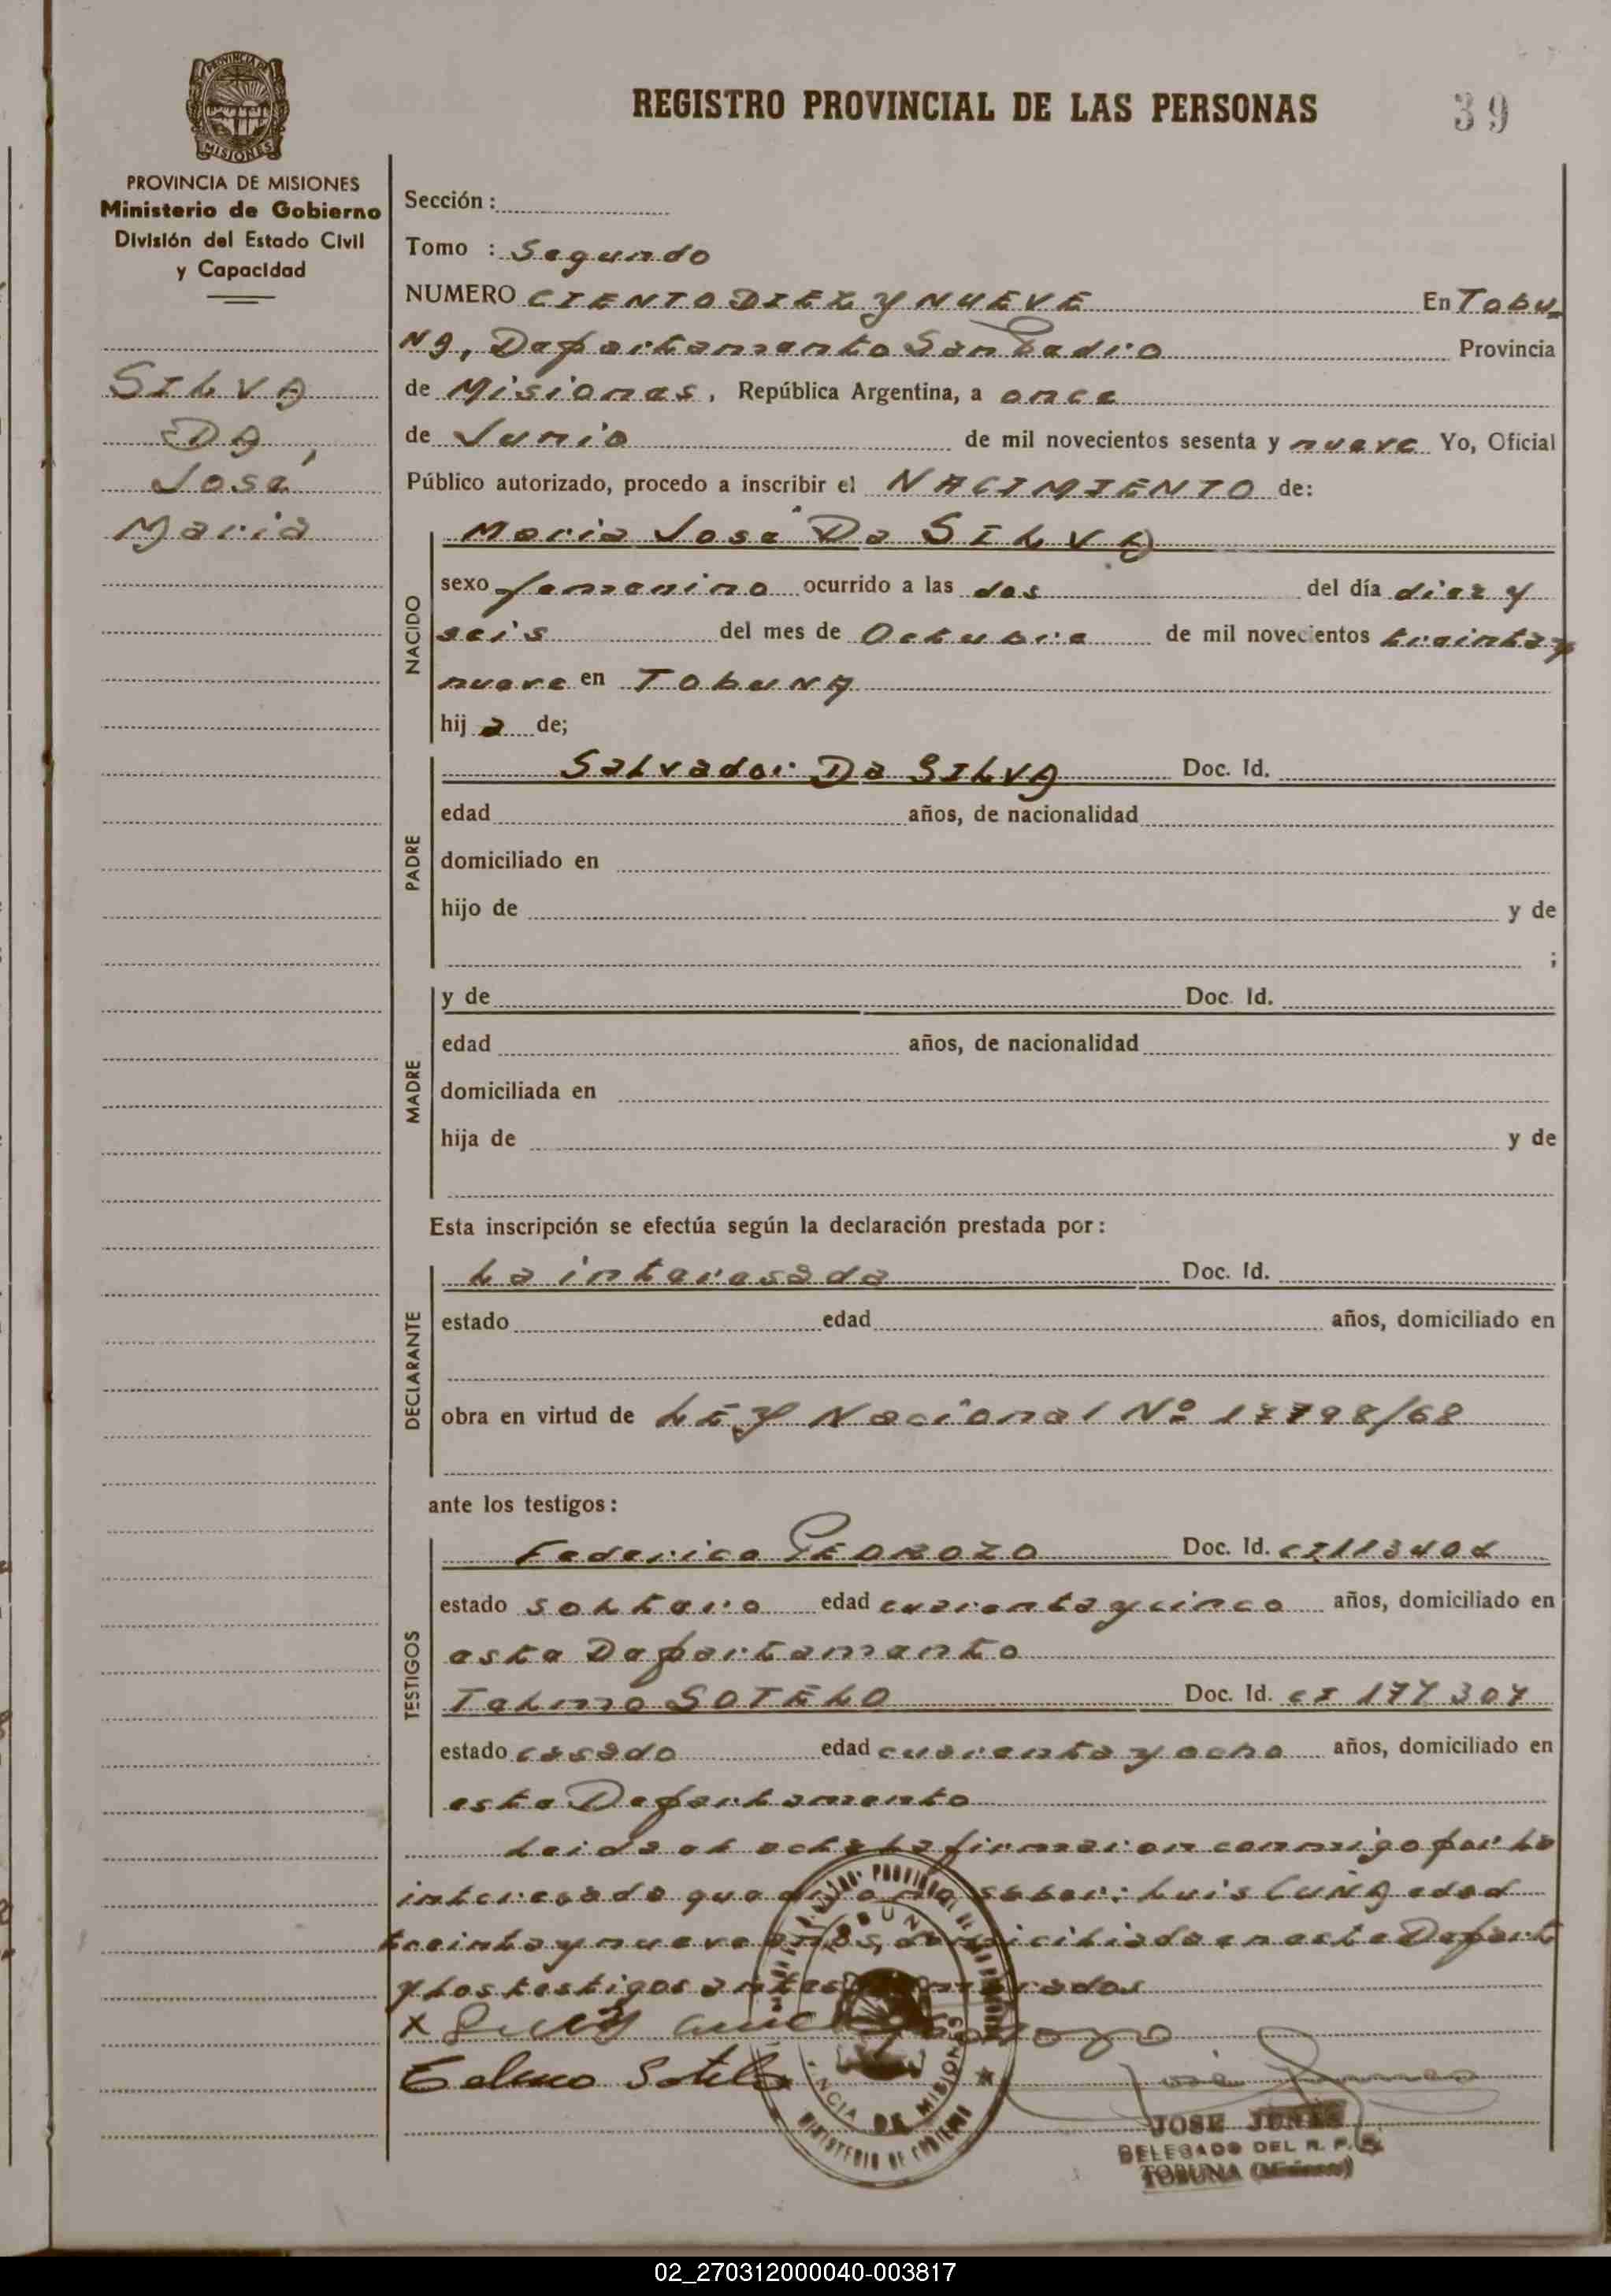 REGISTRO PROVINCIAL DE LAS PERSONAS
39
PROVINCIA DE MISIONES
PROVINCIA DE MISIONES
Ministerio de Gobierno
División del Estado Civil
y Capacidad
SILVA
DA,
José
Maria
Sección :
Tomo : Segundo
NUMERO CIENTO DIEZ Y NUEVE En Tobu-
NA, Departamento San Pedro Provincia
de Misiones, República Argentina, a once
de Junio de mil novecientos sesenta y nueve Yo, Oficial
Público autorizado, procedo a inscribir el NACIMIENTO de:
NACIDO
Maria José Da SILVA
sexo femenino ocurrido a las dos del día diez y
seis del mes de Octubre de mil novecientos treinta y
nueve en TobuNA
hij a de;
PADRE
Salvador Da SILVA Doc. Id.
edad años, de nacionalidad
domiciliado en
hijo de y de
;
MADRE
y de Doc. Id.
edad años, de nacionalidad
domiciliada en
hija de y de
Esta inscripción se efectúa según la declaración prestada por :
DECLARANTE
La interesada Doc. Id.
estado edad años, domiciliado en
obra en virtud de LEY Nacional Nº 17798/68
ante los testigos :
TESTIGOS
Federico PEDROZO Doc. Id. CI
estado soltero edad cuarenta y cinco años, domiciliado en
este Departamento
Telmo SOTELO Doc. Id. CI 177307
estado casado edad cuarenta y ocho años, domiciliado en
este Departamento
Leida el acta la firmaron conmigo por la
interesada que saber: Luis CUNA edad
treinta y nueve años, domiciliado en este Depart
y los testigos antes
x
Telmo Sotelo
DE MISIONES
MINISTERIO DE GOBIERNO
JOSE
DELEGADO DEL R. P.
TOBUNA (Misiones)
02_270312000040-003817